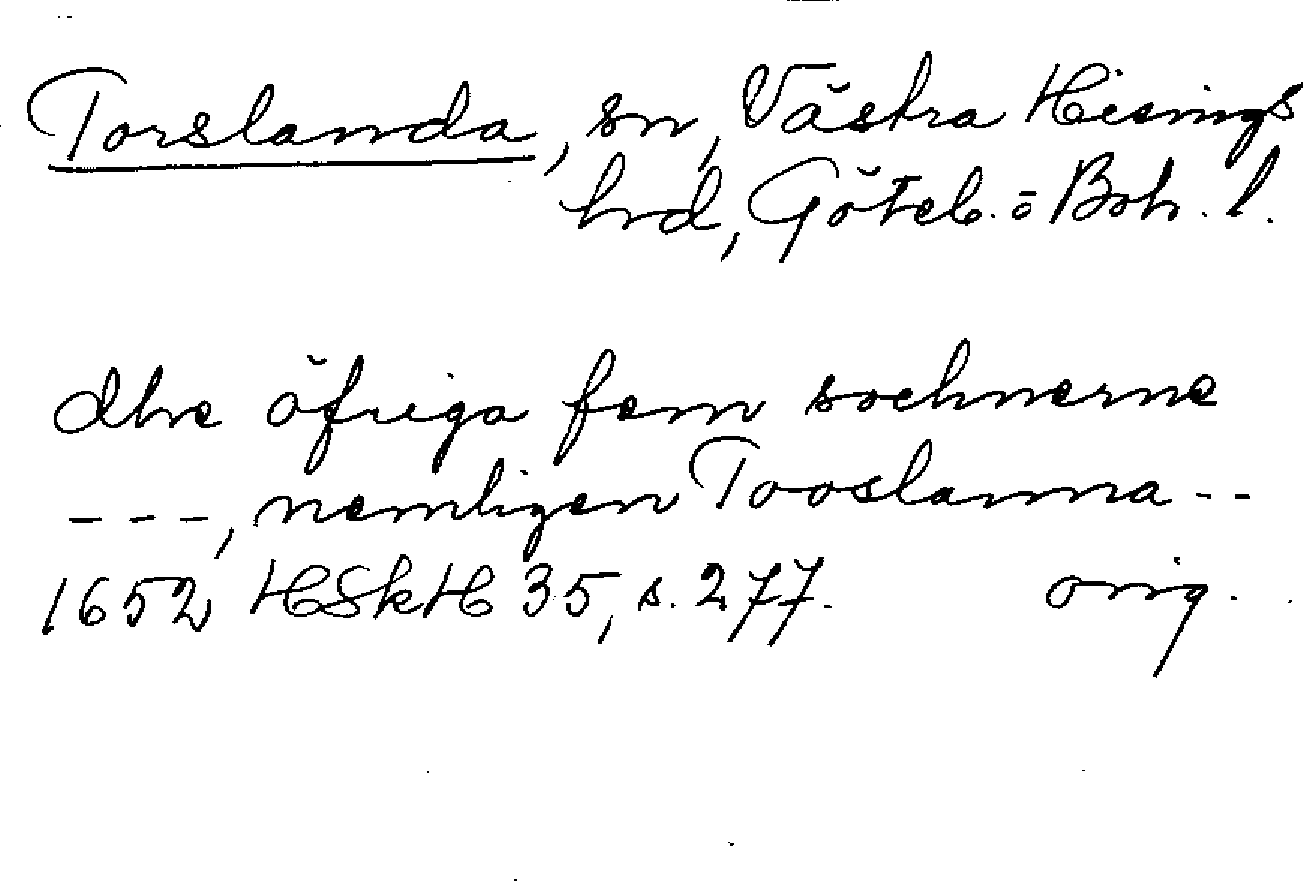 Torslanda, sn, Västra Hisings
hrd, Göteb. o Boh. l.
dhe öfriga fem sochnerne
---, nemligen Tooslanna --
1652 HSkH 35, s. 277. orig.